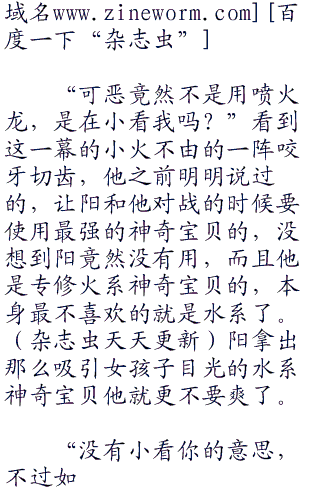 域名www.zineworm.com][百
度一下“杂志虫”]
“可恶竟然不是用喷火
龙，是在小看我吗？”看到
这一幕的小火不由的一阵咬
牙切齿，他之前明明说过
的，让阳和他对战的时候要
使用最强的神奇宝贝的，没
想到阳竟然没有用，而且他
是专修火系神奇宝贝的，本
身最不喜欢的就是水系了。
（杂志虫天天更新）阳拿出
那么吸引女孩子目光的水系
神奇宝贝他就更不要爽了。
“没有小看你的意思，
不过如